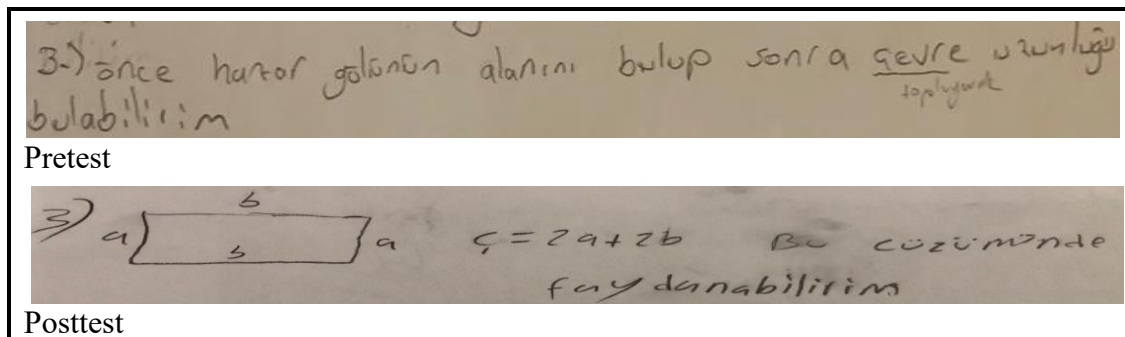 3-) önce hazar gölünün alanını bulup sonra çevre uzunluğu
toplayarak
bulabilirim
Pretest
b
3) a b a Ç = 2a + 2b Bu çözümünde
faydanabilirim
Posttest